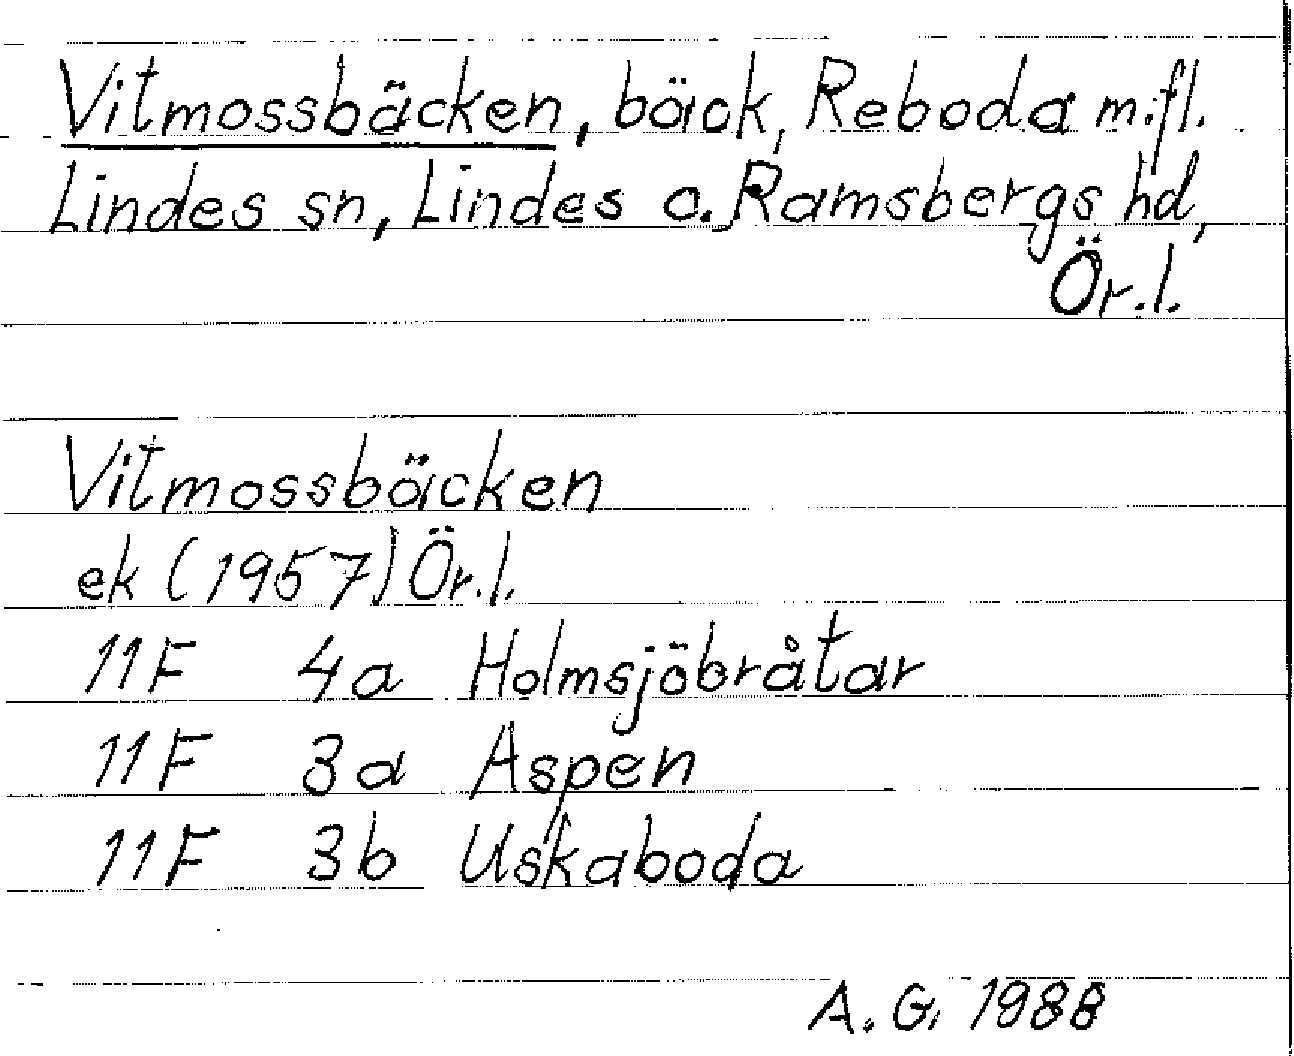 Vitmossbäcken, bäck, Reboda m.fl.
Lindes sn, Lindes o. Ramsbergs hd,
Ör.l.
Vitmossbäcken
ek (1957) Ör.l.
11F 4a Holmsjöbråtar
11F 3a Aspen
11F 3b Uskaboda
A. G. 1988